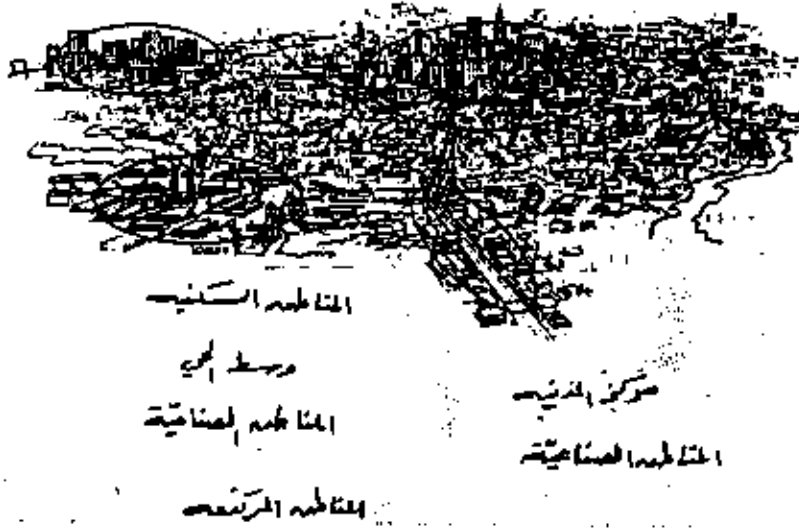 المناطق السكنيه
وسط الحي
المناطق الصناعيّة
المناطق المركزيه
مركز المدينه
المناطق الصناعيّة